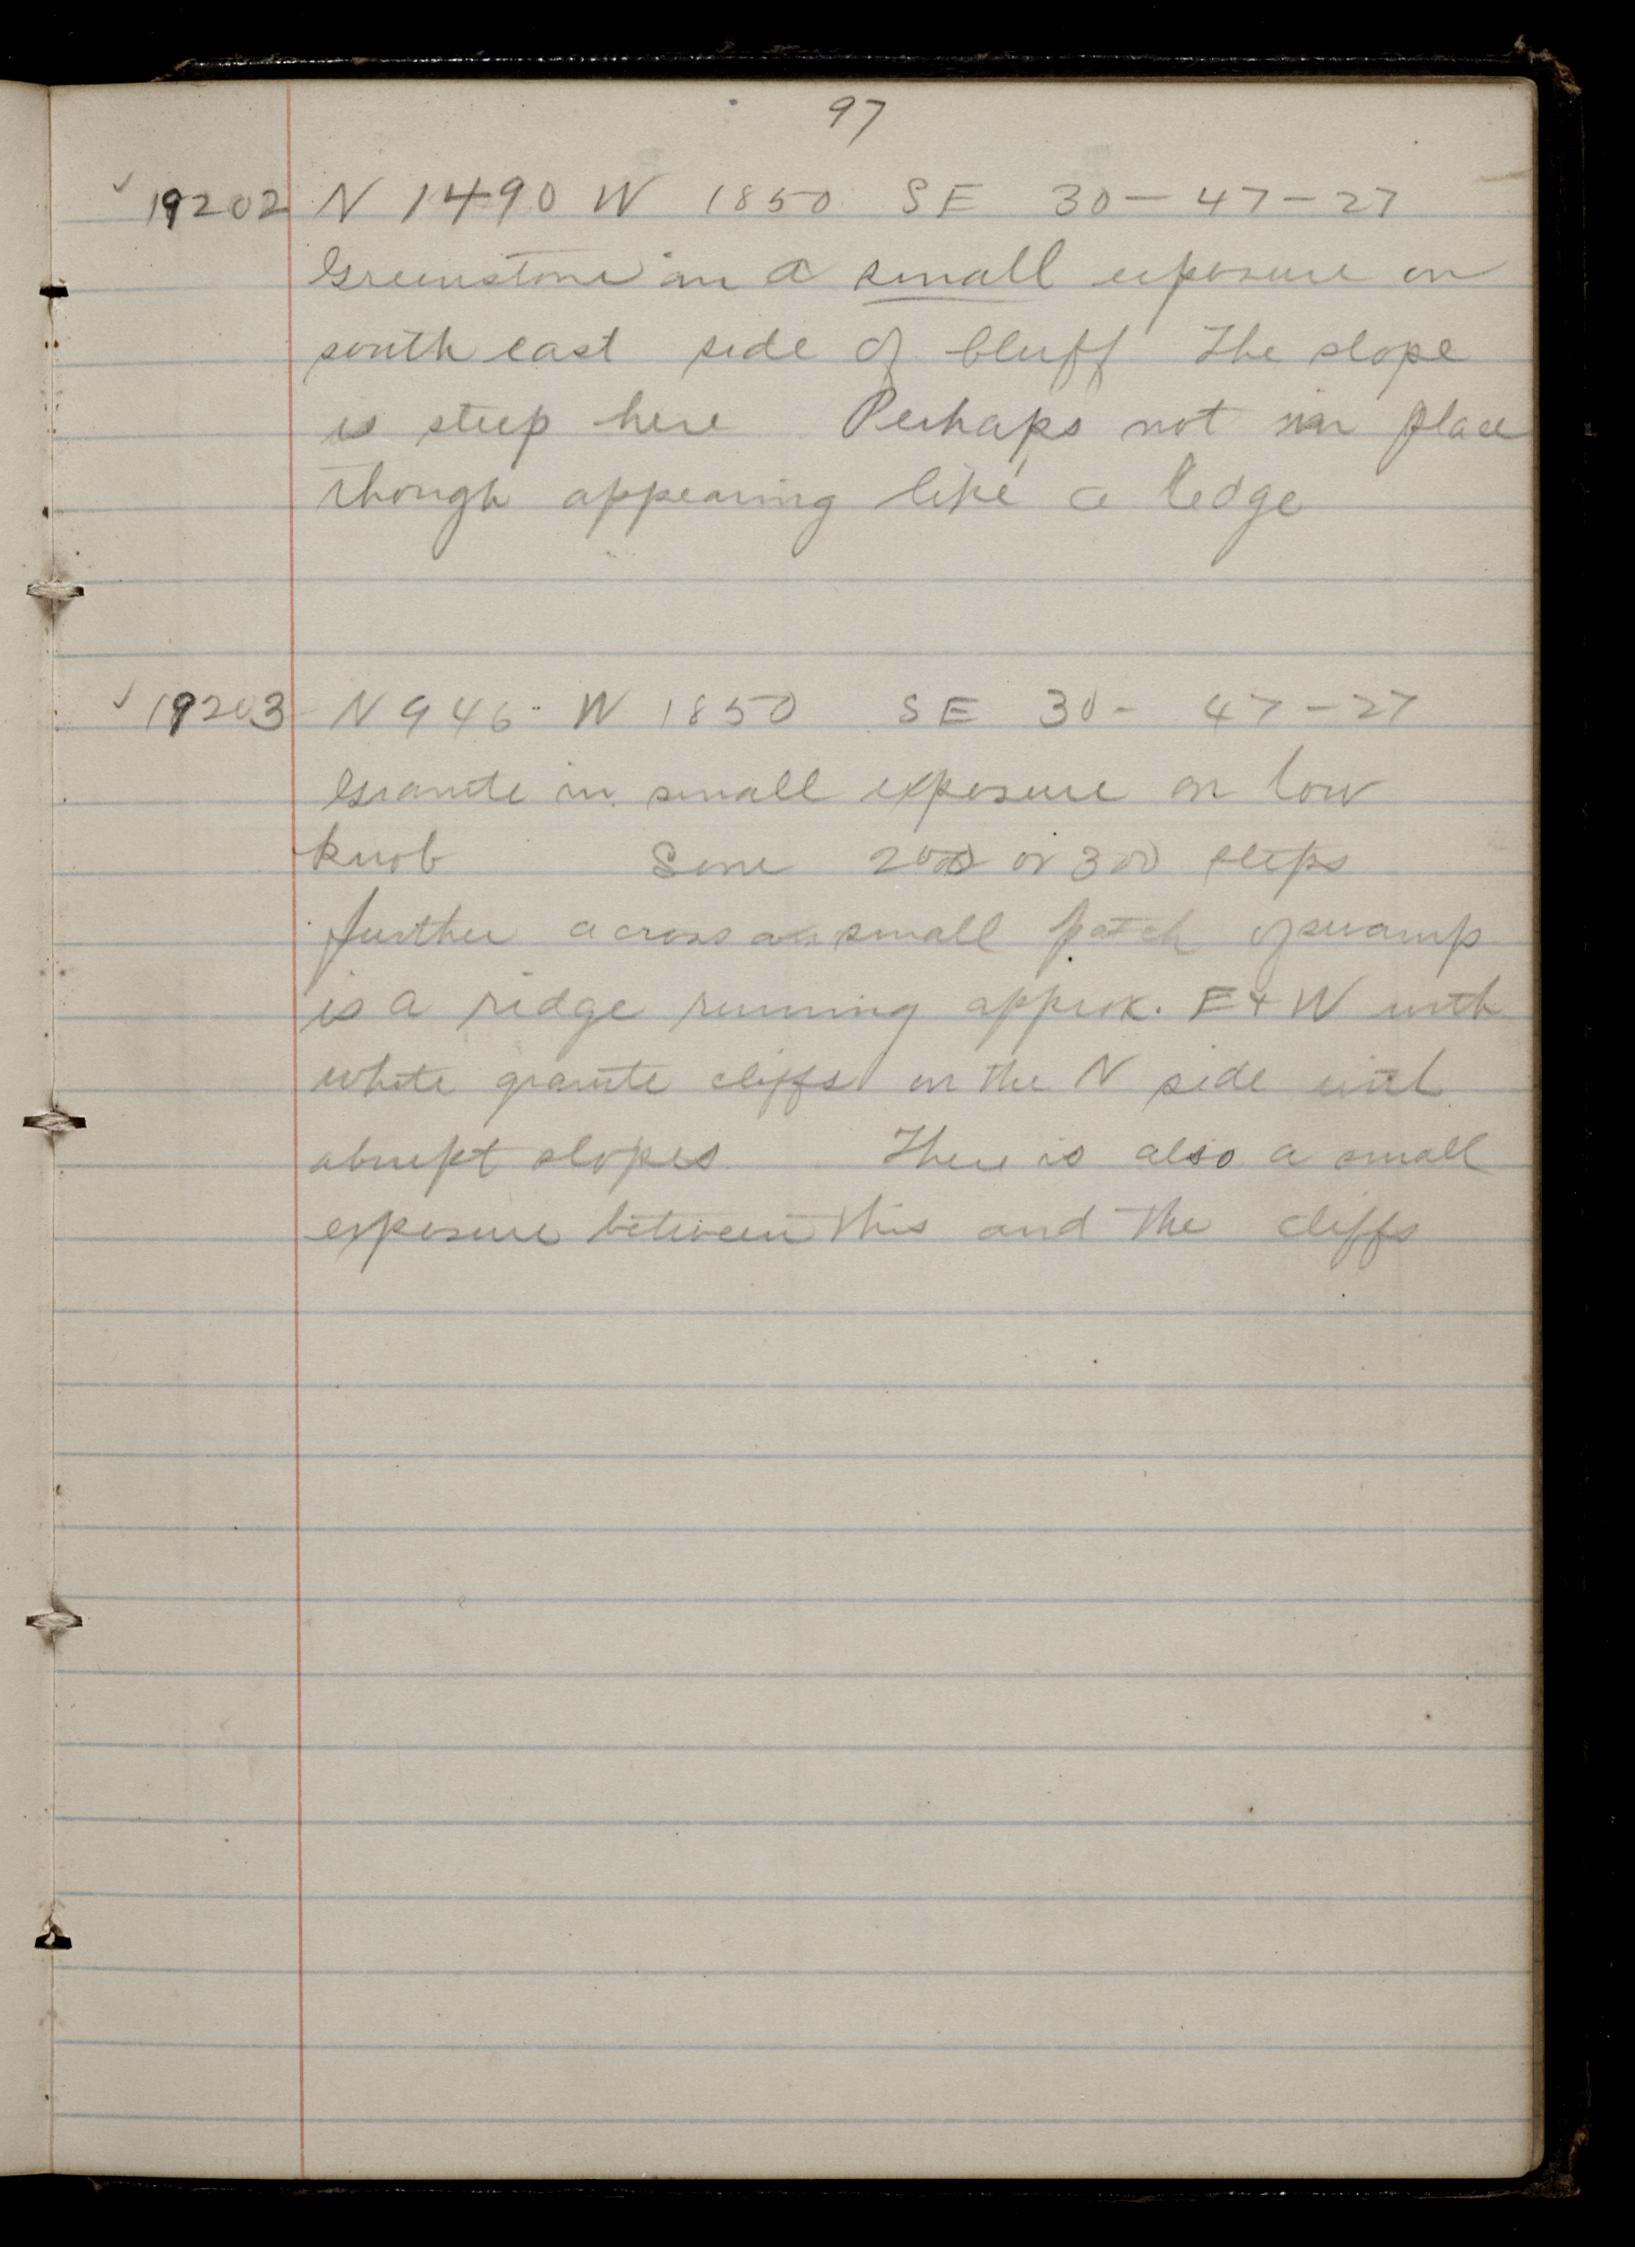 97
✓ 19202 N 1490 W 1850 SE 30-47-27
Greenstone in a small exposure on
south east side of bluff The slope
is steep here Perhaps not in place
though appearing like a ledge
✓ 19203 N 946 W 1850 SE 30-47-27
Granite in small exposure on low
knob Some 200 or 300 steps
further across a small patch of swamp
is a ridge running approx. E + W with
white granite cliffs on the N side with
abrupt slopes There is also a small
exposure between this and the cliffs